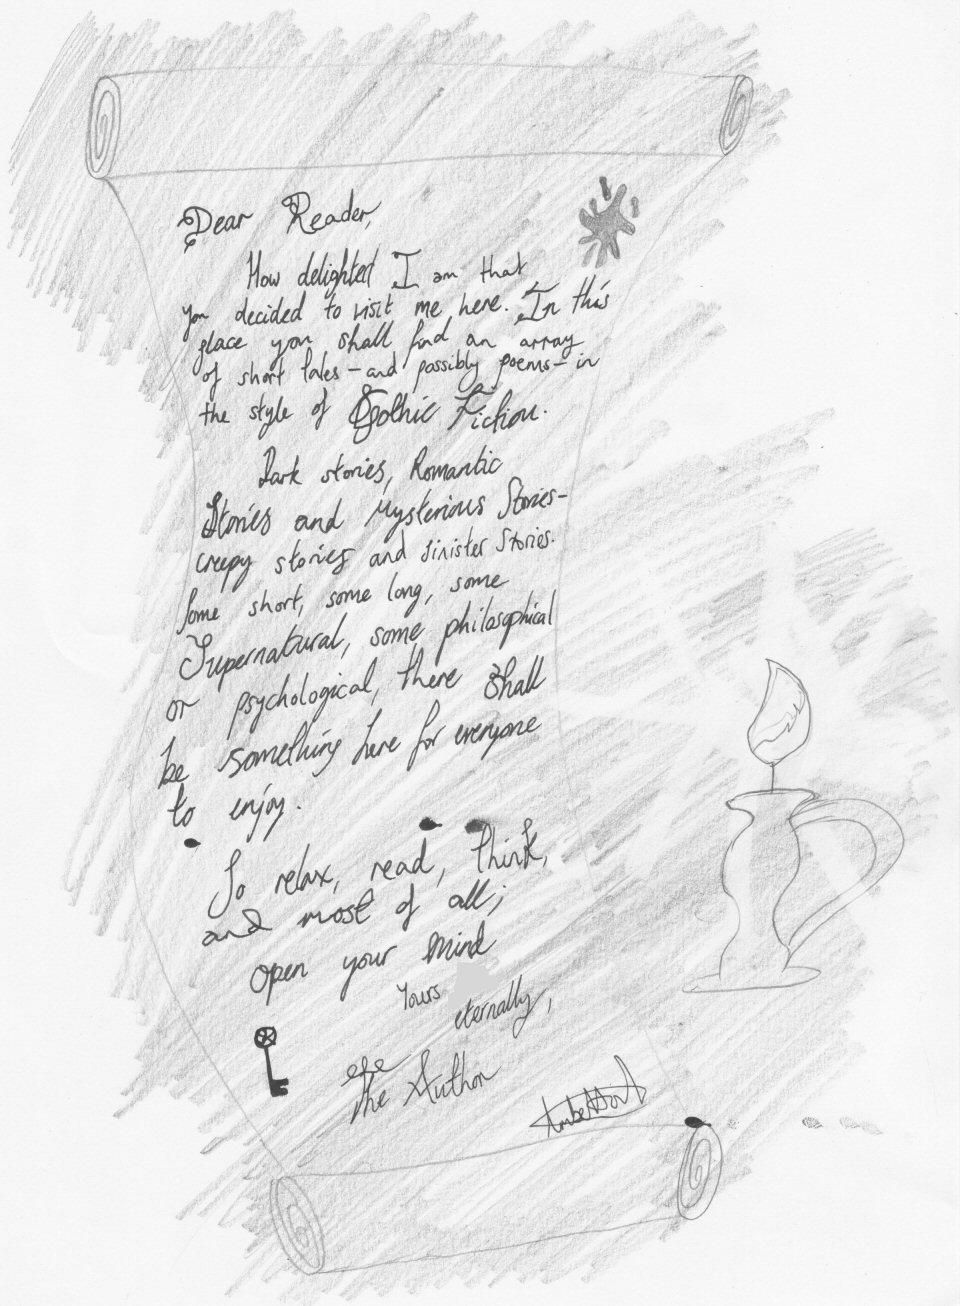 Dear Reader,
How delighted I am that
you decided to visit me here. In this
place you shall find an array
of short tales - and possibly poems - in
the style of Gothic Fiction.
Dark stories, Romantic
Stories and Mysterious Stories-
creepy stories and sinister stories.
Some short, some long, some
Supernatural, some philosophical
or psychological, there shall
be something here for everyone
to enjoy.
So relax, read, think,
and most of all;
open your mind
Yours
eternally,
The Author